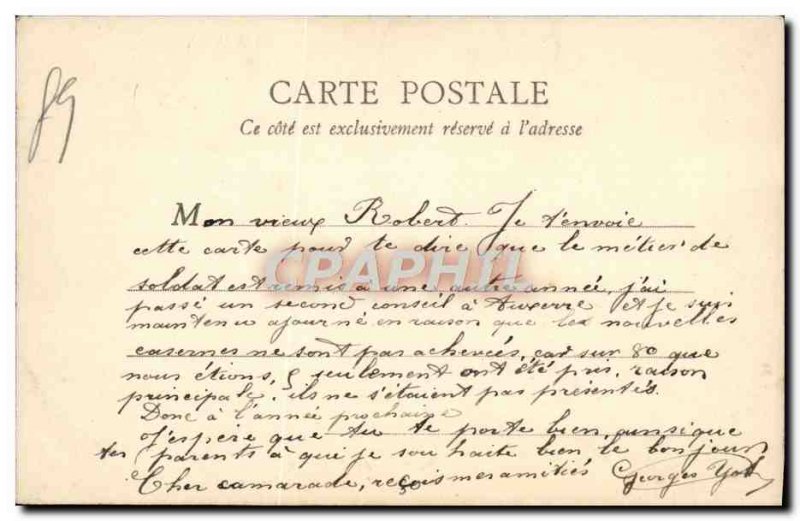 89
CARTE POSTALE
Ce côté est exclusivement réservé à l'adresse
Mon vieux Robert. Je t'envoie
cette carte pour te dire que le métier de
soldat est remis à une autre année, j'ai
passé un second conseil à Auxerre et je suis
maintenu ajourné en raison que les nouvelles
casernes ne sont pas achevées, car sur 80 que
nous étions, 5 seulement ont été pris, raison
principale, ils ne s'étaient pas présentés.
Donc à l'année prochaine
J'espère que tu te porte bien, ainsi que
tes parents à qui je souhaite bien le bonjour
Cher camarade, reçois mes amitiés Georges
CPAPHIL